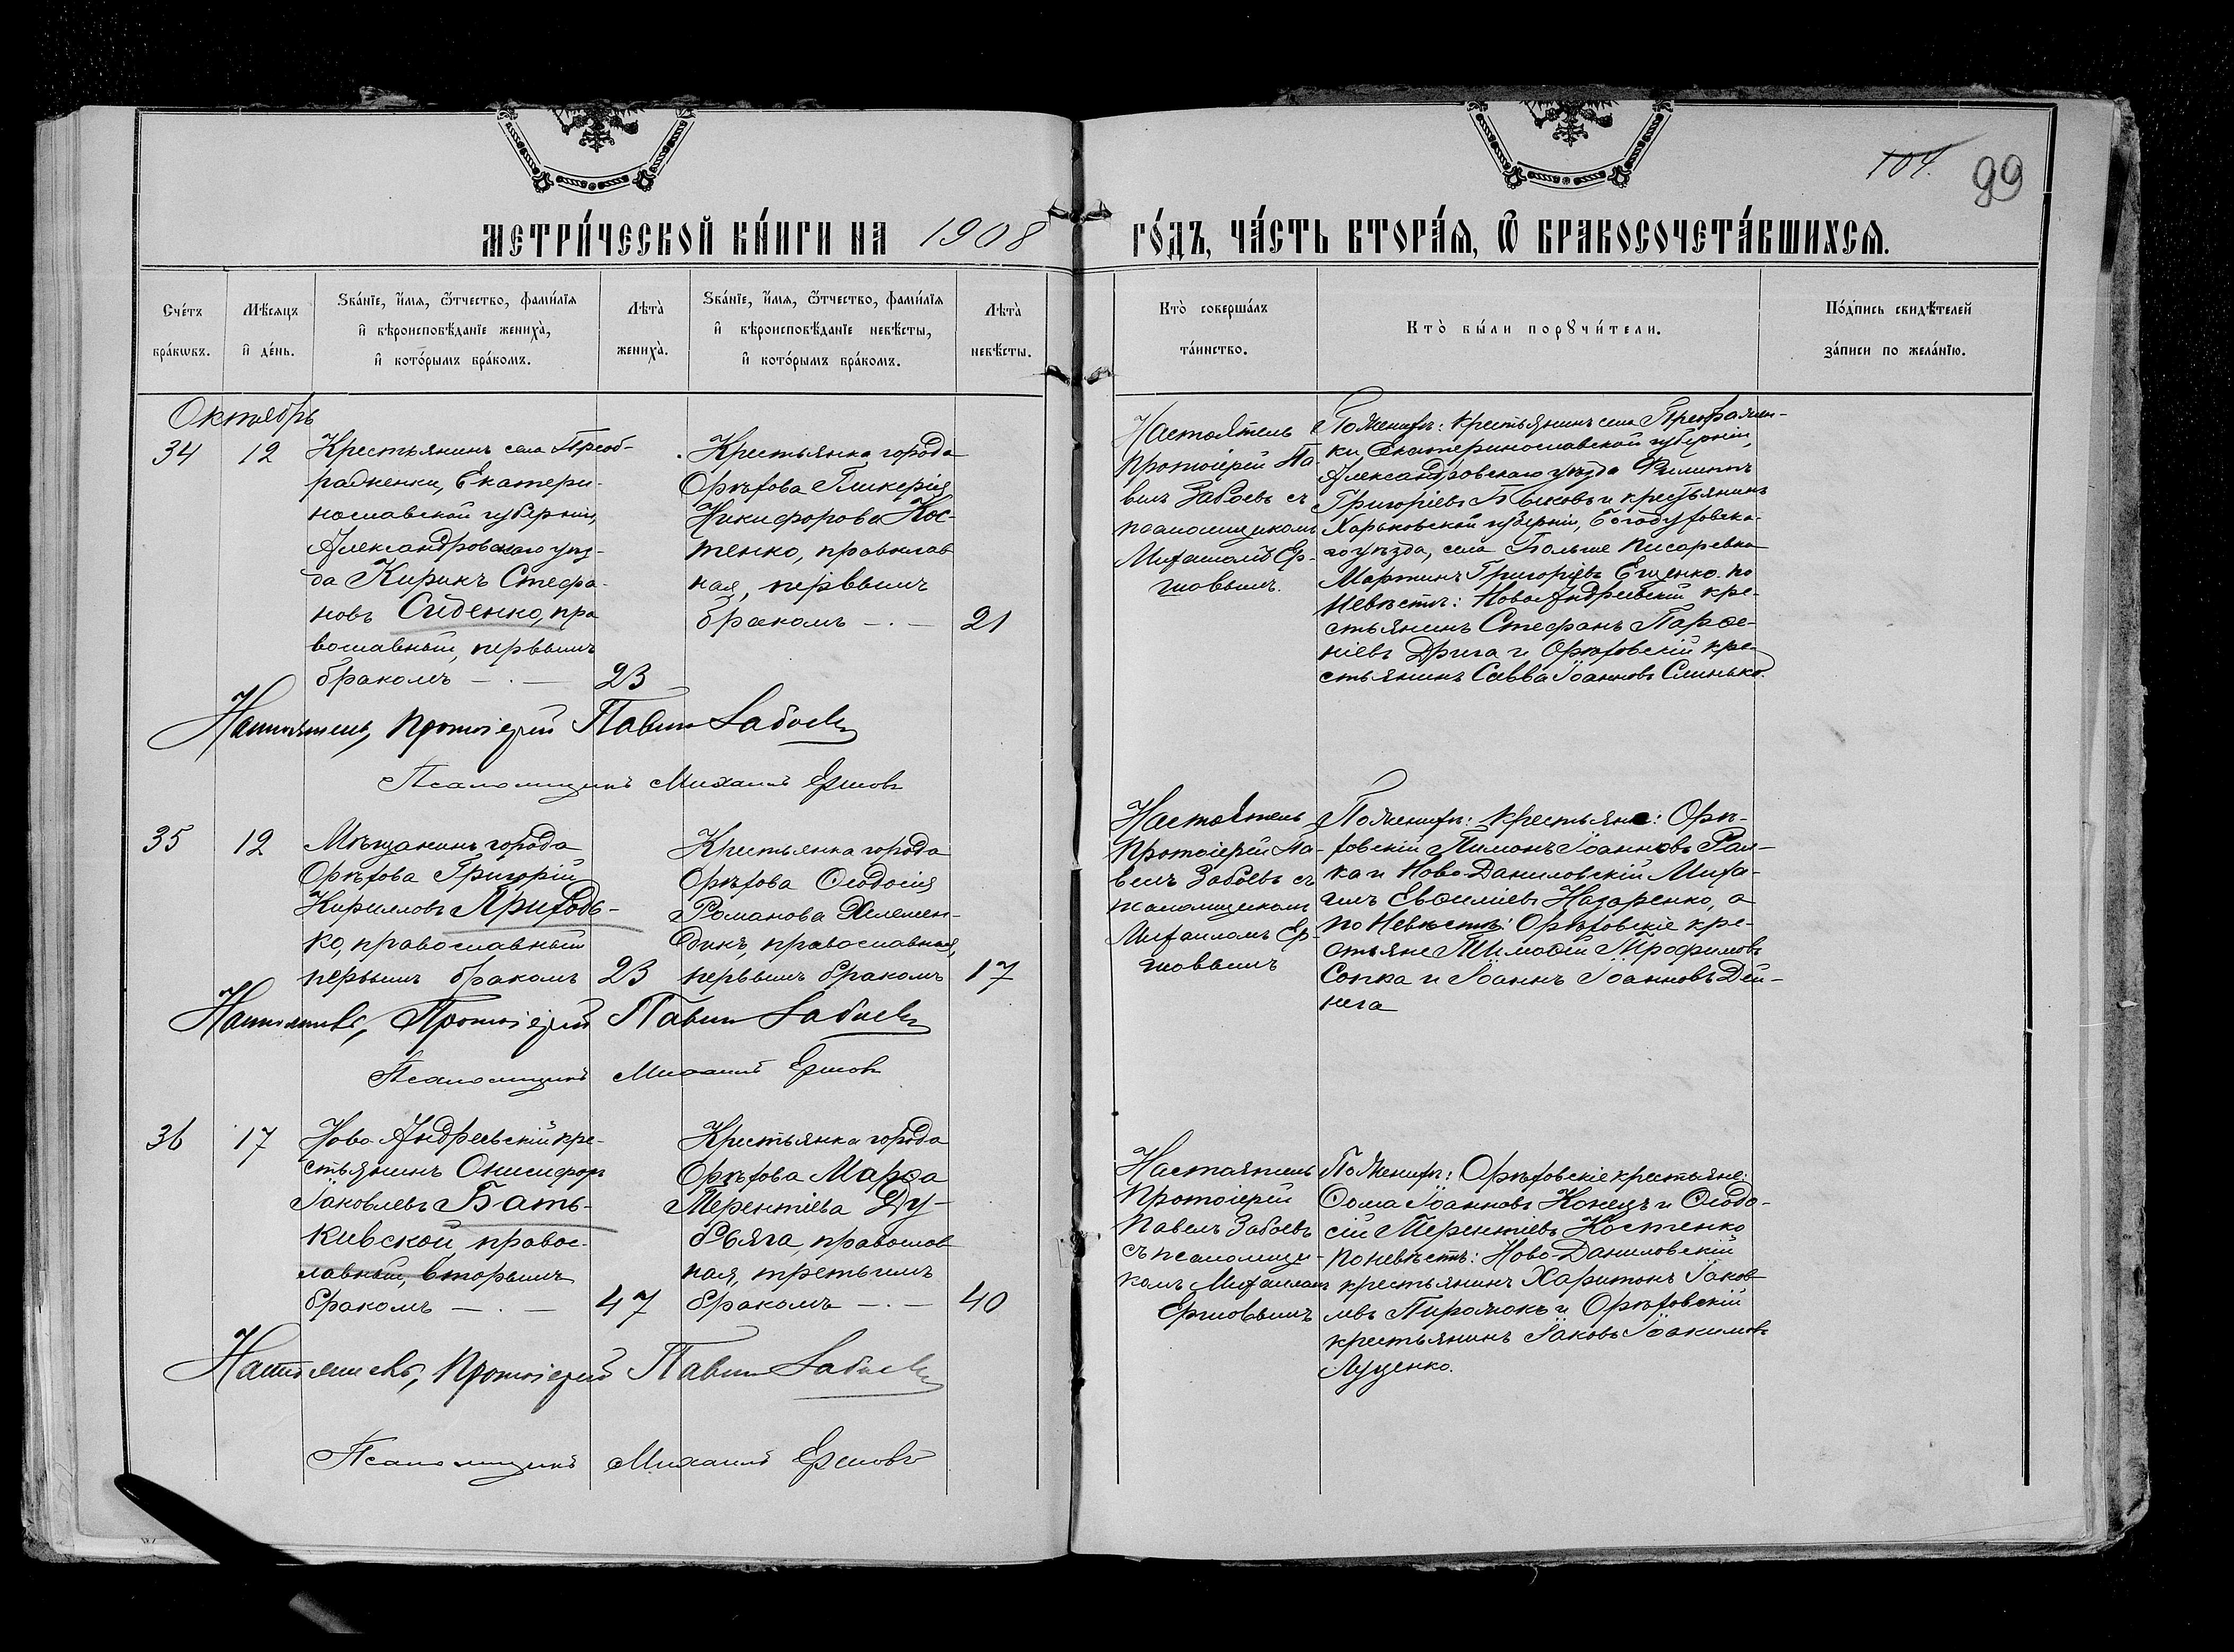 104.
99
МЕТРИ́ЧЕСКОЙ КНИ́ГИ НА 1908 ГО́ДЪ, ЧА́СТЬ ВТОРА́Ѧ, Ѿ БРАКОСОЧЕТА́ВШИХСѦ.
Сче́тъ бра́кѡвъ.
Мѣ́сяцъ и де́нь.
Ѕва́нїе, и́мѧ, ѻ́тчество, фами́лїя и вѣроисповѣ́данїе жениха̀, и кото́рымъ бра́комъ.
Лѣта̀ жениха̀.
Ѕва́нїе, и́мѧ, ѻ́тчество, фами́лїя и вѣроисповѣ́данїе невѣ́сты, и кото́рымъ бра́комъ.
Лѣта̀ невѣ́сты.
Кто̀ соверша́лъ та́инство.
Кто̀ бы́ли порꙋчи́тели.
По́дпись свидѣ́телей за́писи по жела́нїю.
Октябрь
34
12
Крестьянинъ села Преоб-
раженки, Екатери-
нославской губерніи,
Александровскаго уѣз-
да Кирикъ Стефа-
новъ Сиденко, пра
вославный, первымъ
бракомъ — . —
23
Крестьянка города
Орѣхова Гликерія
Никифорова Кос-
тенко, православ
ная, первымъ
бракомъ — . —
21
Настоятель
Протоіерей Па-
велъ Забоевъ съ
псаломщикомъ
Михаиломъ Ер-
шовымъ.
По женихѣ: крестьянинъ села Преображен-
ки Екатеринославской губерніи,
Александровскаго уѣзда Филиппъ
Григоріевъ Быковъ и крестьянинъ
Харьковской губерніи, Богодуховска-
го уѣзда, села Больше Писаревка
Мартинъ Григоріевъ Ещенко. по
Невѣстѣ: Ново Андреевскій кре-
стьянинъ Стефанъ Парѳе-
ніевъ Дрига и Орѣховскій кре-
стьянинъ Савва Іоанновъ Слинько.
Настоятель, Протоіерей Павелъ Забоевъ
Псаломщикъ Михаилъ Ершовъ
35
12
Мѣщанинъ города
Орѣхова Григорій
Кирилловъ Приходь-
ко, православный
первымъ бракомъ
23
Крестьянка города
Орѣхова Ѳеодосія
Романова
православная,
первымъ бракомъ
17
Настоятель
Протоіерей Па-
велъ Забоевъ съ
псаломщикомъ
Михаиломъ Ер-
шовымъ
По женихѣ: крестьяне: Орѣ-
ховскій Пименъ Іоанновъ Рал-
ка и Ново-Даниловскій Миха-
илъ Евѳиміевъ Назаренко, а
по Невѣстѣ: Орѣховскіе кре-
стьяне Тимоѳей Трофимовъ
Сопка и Іоаннъ Іоанновъ Дей-
нега
Настоятель, Протоіерей Павелъ Забоевъ
Псаломщикъ Михаилъ Ершовъ
36
17
Ново-Андреевскій кре-
стьянинъ Онисифоръ
Іаковлевъ Бать-
кивской, правос-
лавный, вторымъ
бракомъ — . —
47
Крестьянка города
Орѣхова Марѳа
Терентіева Ду-
бвяга, православ
ная, третьимъ
бракомъ — . —
40
Настоятель
Протоіерей
Павелъ Забоевъ
съ псаломщи-
комъ Михаиломъ
Ершовымъ
По женихѣ: Орѣховскіе крестьяне:
Ѳома Іоанновъ Конецъ и Ѳеодо-
сій Терентіевъ Костенко
по невѣстѣ: Ново-Даниловскій
крестьянинъ Харитонъ Іаков-
левъ Пирожокъ и Орѣховскій
крестьянинъ Іаковъ Іоакимовъ
Луценко.
Настоятель, Протоіерей Павелъ Забоевъ
Псаломщикъ Михаилъ Ершовъ